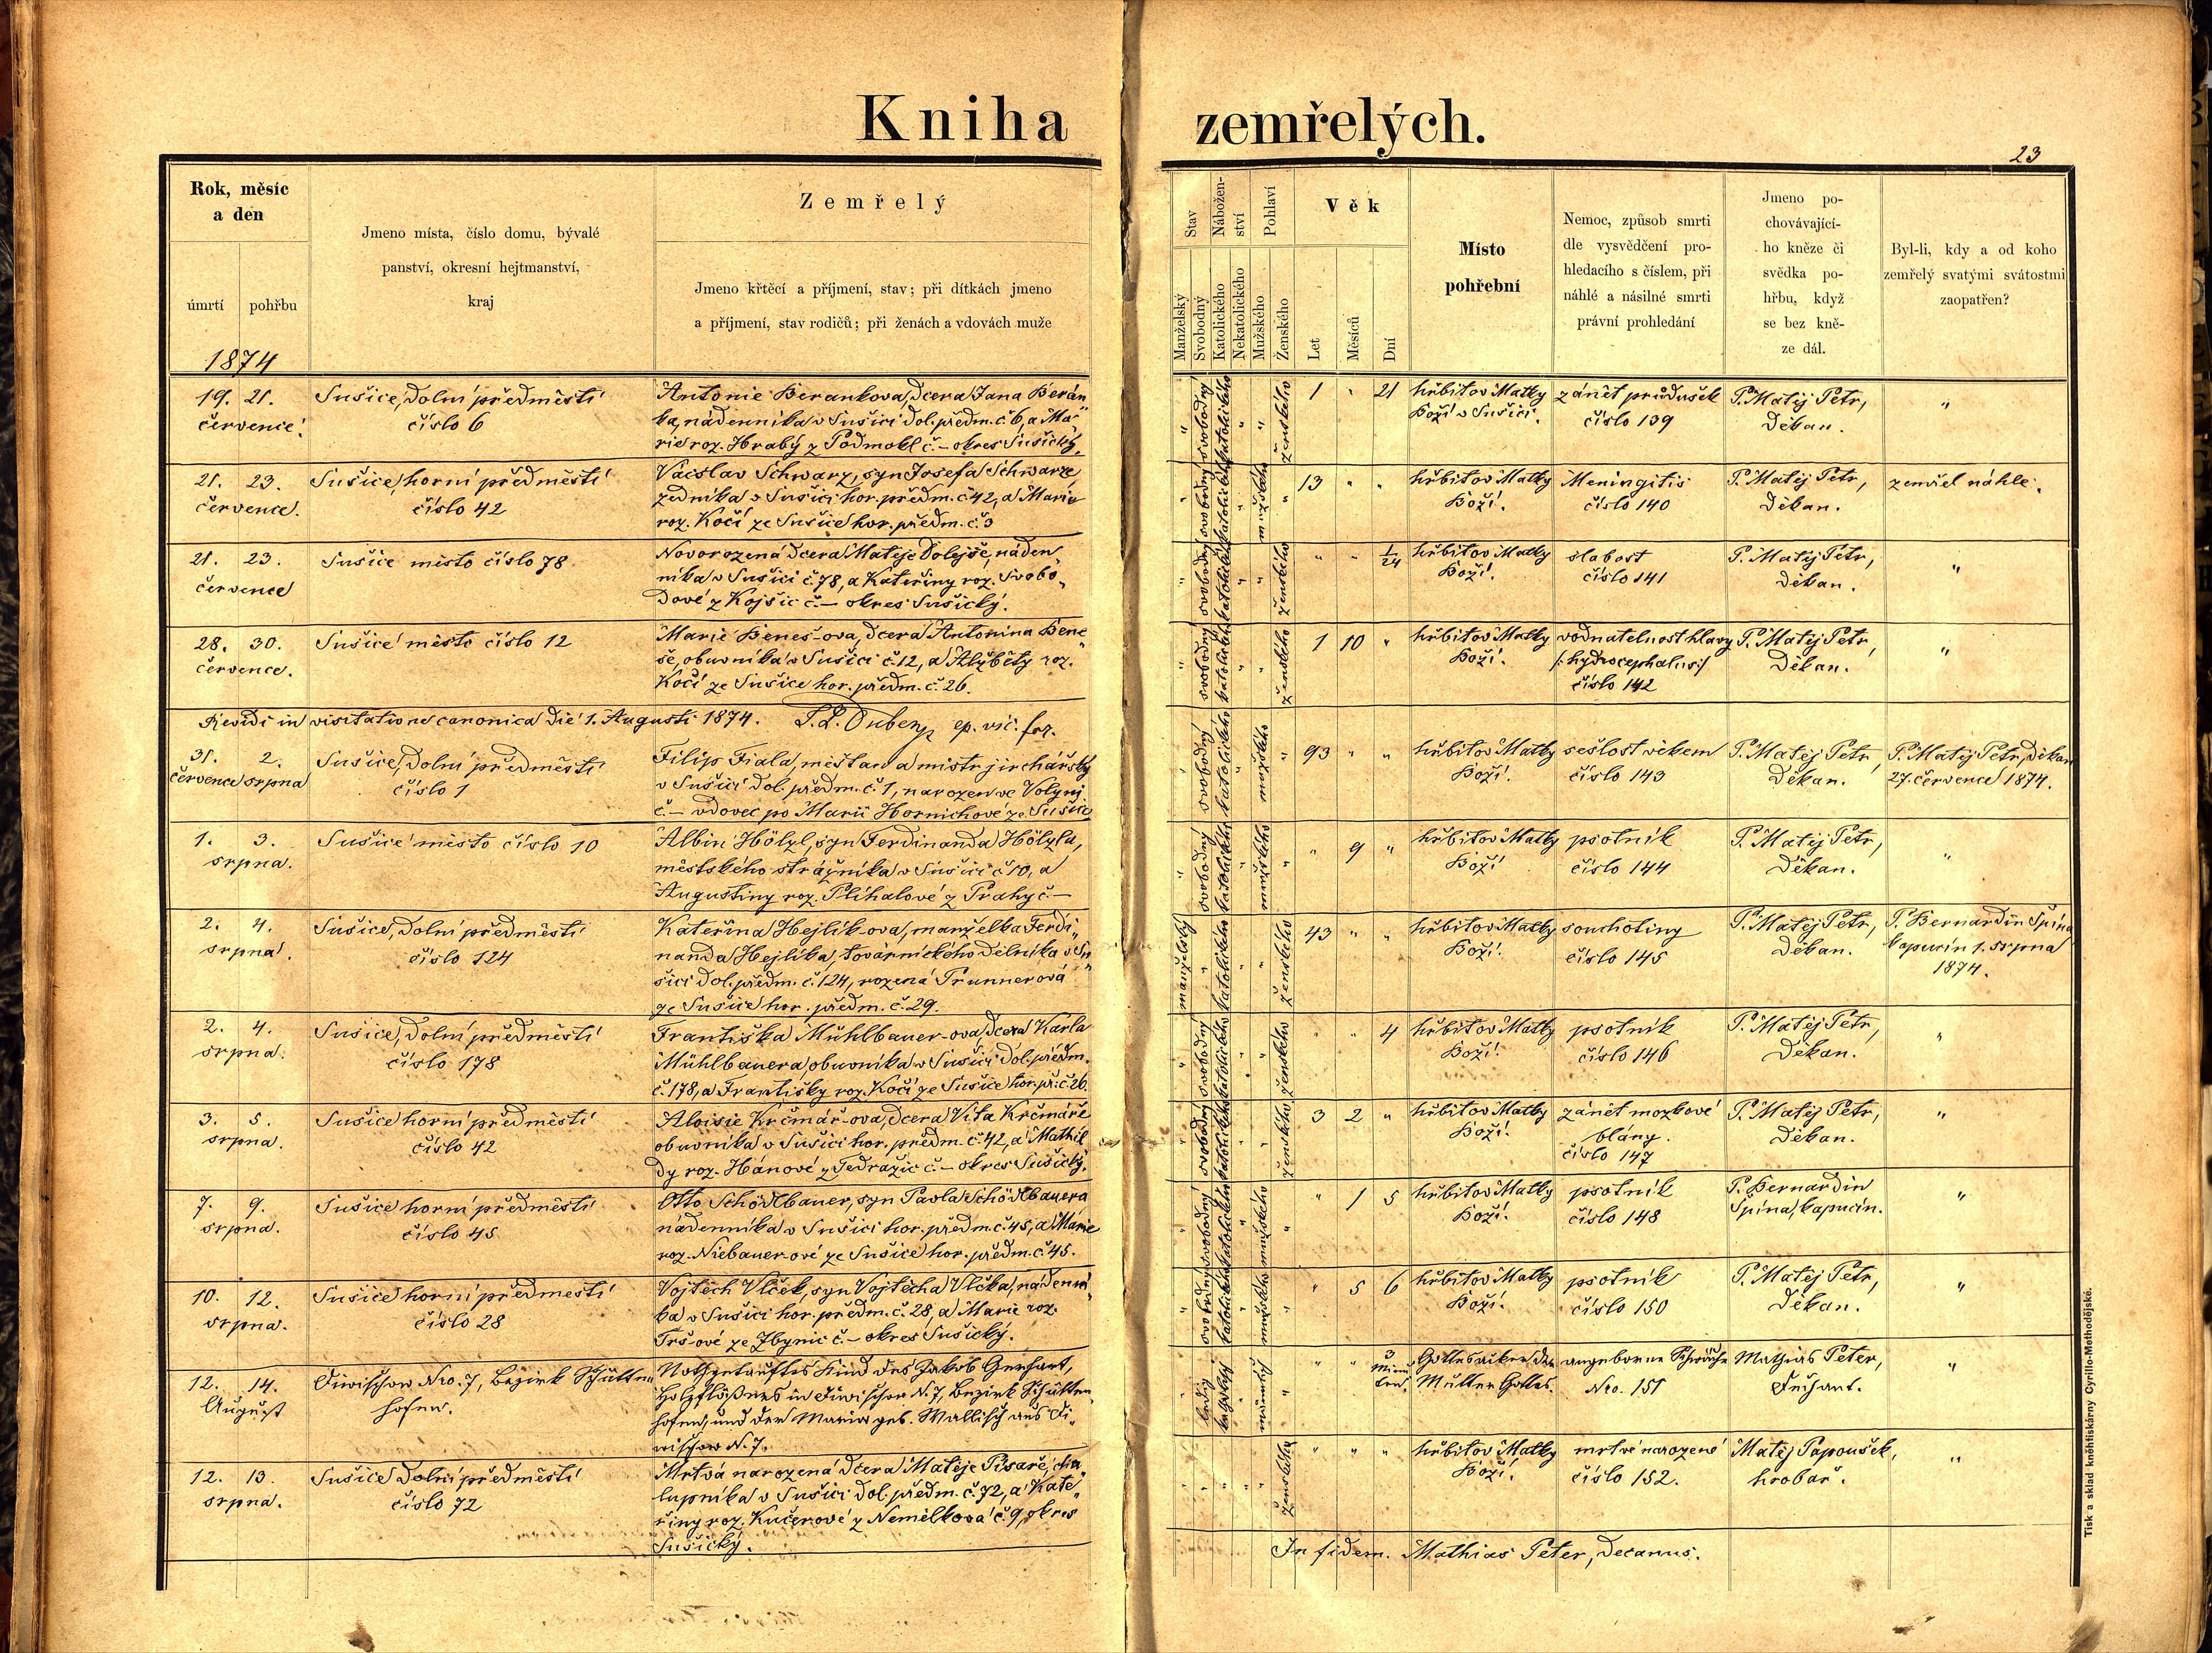 Kniha zemřelých.
23
Rok, měsíc
a den
úmrtí pohřbu
1874
Jmeno místa, číslo domu, bývalé
panství, okresní hejtmanství,
kraj
Zemřelý
Jmeno křtěcí a příjmení, stav; při dítkách jmeno
a příjmení, stav rodičů; při ženách a vdovách muže
Stav
Manželský
Svobodný
Nábožen-
ství
Katolického
Nekatolického
Pohlaví
Mužského
Ženského
Věk
Let
Měsíců
Dní
Místo
pohřební
Nemoc, způsob smrti
dle vysvědčení pro-
hledacího s číslem, při
náhlé a násilné smrti
právní prohledání
Jmeno po-
chovávající-
ho kněze či
svědka po-
hřbu, když
se bez kně-
ze dál.
Byl-li, kdy a od koho
zemřelý svatými svátostmi
zaopatřen?
19. 21.
července.
Sušice, dolní předměstí
číslo 6
Antonie Berankova, dcera Jana Berán„
ka, nádenníka v Sušici dol. předm. č. 6, a Ma„
rie roz. Hrabý z Podmokl č. – okres Sušický.
" svobodný katolického " " ženského
1 " 21
hřbitov Matky
Boží v Sušici.
zánět průdušek
číslo 139
P. Matěj Petr,
Děkan.
"
21. 23.
července.
Sušice, horní předměstí
číslo 42
Václav Schwarz, syn Josefa Schwarze
zedníka v Sušici hor. předm. č 42, a Marie
roz. Kočí ze Sušice hor. předm. č. 3
" svobodný katolického " mužského "
13 " "
hřbitov Matky
Boží.
Meningitis
číslo 140
P. Matěj Petr,
Děkan.
zemřel náhle.
21. 23.
července
Sušice město číslo 78
Novorozená dcera Matěje Dolejše, náden„
níka v Sušici č. 78, a Kateřiny roz. Svobo„
dové z Kojšic č. – okres Sušický.
" svobodný katolického " " ženského
" " 1/24
hřbitov Matky
Boží.
slabost
číslo 141
P. Matěj Petr,
Děkan.
"
28. 30.
července.
Sušice město číslo 12
Marie Beneš-ova, dcera Antonína Bene„
še, obuvníka v Sušici č. 12, a Alžběty roz.
Kočí ze Sušice hor. předm. č. 26.
" svobodný katolického " " ženského
1 10 "
hřbitov Matky
Boží.
vodnatelnost hlavy
/: hydrocephalus :/
číslo 142
P. Matěj Petr,
Děkan.
"
Revidi in visitatione canonica die 1. Augusti 1874. ep. vic. for.
31. 2.
července srpna
Sušice, dolní předměstí
číslo 1
Filip Fiala, měšťan a mistr jirchářský
v Sušici dol. předm. č. 1, narozen ve Volyni
č. – vdovec po Marii Hornichové ze Sušice
" svobodný katolického " mužského "
93 " "
hřbitov Matky
Boží.
sešlost věkem
číslo 143
P. Matěj Petr,
Děkan.
P. Matěj Petr, Děkan
27. července 1874.
1. 3.
srpna.
Sušice město číslo 10
Albin Hölzl, syn Ferdinanda Hölzla,
městského strážníka v Sušici č 10, a
Augustiny roz. Plíhalové z Prahy č –
" svobodný katolického " mužského "
" 9 "
hřbitov Matky
Boží
psotník
číslo 144
P. Matěj Petr,
Děkan.
"
2. 4.
srpna.
Sušice, dolní předměstí
číslo 124
Kateřina Hejlík-ova, manželka Ferdi„
nanda Hejlíka, továrnického dělníka v Su„
šici dol. předm. č. 124, rozená Trunnerová
ze Sušice hor. předm. č. 29.
manželský " katolického " " ženského
43 " "
hřbitov Matky
Boží.
souchotiny
číslo 145
P. Matěj Petr,
Děkan.
P. Bernardin Špína
kapucín 1. srpna
1874.
2. 4.
srpna.
Sušice, dolní předměstí
číslo 178
Františka Mühlbauer-ova, dcera Karla
Mühlbauera, obuvníka v Sušici dol. předm.
č. 178, a Františky roz. Kočí ze Sušice hor. př. č. 26.
" svobodný katolického " " ženského
" " 4
hřbitov Matky
Boží.
psotník
číslo 146
P. Matěj Petr,
Děkan.
"
3. 5.
srpna.
Sušice horní předměstí
číslo 42
Aloisie Krčmář-ova, dcera Víta Krčmáře
obuvníka v Sušici hor. předm. č. 42, a Mathil„
dy roz. Hánové z Tedražic č. – okres Sušický.
" svobodný katolického " " ženského
3 2 "
hřbitov Matky
Boží.
zánět mozkové
blány.
číslo 147
P. Matěj Petr,
Děkan.
"
7. 9.
srpna.
Sušice horní předměstí
číslo 45
Otto Schödlbauer, syn Pavla Schödlbauera
nádenníka v Sušici hor. předm. č. 45, a Marie
roz. Niebauer-ové ze Sušice hor. předm. č 45.
" svobodný katolického " mužského "
" 1 5
hřbitov Matky
Boží.
psotník
číslo 148
P. Bernardin
Špína, kapucín.
"
10. 12.
srpna.
Sušice horní předměstí
číslo 28
Vojtěch Vlček, syn Vojtěcha Vlčka, nádenní„
ka v Sušici hor. předm. č. 28, a Marie roz.
Trš-ové ze Zbynic č. – okres Sušický.
" svobodný katolického " mužského "
" 5 6
hřbitov Matky
Boží.
psotník
číslo 150
P. Matěj Petr,
Děkan.
"
12. 14.
August
Diwischow Nro. 7, Bezirk Schütten„
hofen.
Nothgetauftes Kind des Jakob Gerhart,
Holzflößers in Diwischow N. 7, Bezirk Schütten„
hofen, und der Maria geb. Wallisch aus Di„
wischow N. 7.
" ledig katholisch " männlich "
" " 3
Minu
ten.
Gottesacker der
Mutter Gottes.
angeborne Schwäche
Nro. 151
Mathias Peter,
Dechant.
"
12. 13.
srpna.
Sušice dolní předměstí
číslo 72
Mrtvá narozená dcera Matěje Písaře, cha„
lupníka v Sušici dol. předm. č. 72, a Kate„
řiny roz. Kučerové z Nemilkova č. 9, okres
Sušický.
" " " " " ženského
" " "
hřbitov Matky
Boží.
mrtvě narozené
číslo 152.
Matěj Papoušek,
hrobař.
"
In fidem. Mathias Peter, Decanus.
Tisk a sklad knihtiskárny Cyrillo-Methodějské.